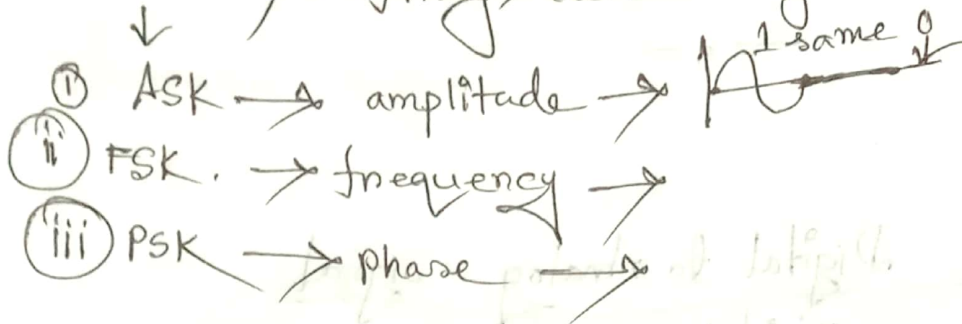 ↓
① ASK → amplitude → 1 same 0
ⓘⓘ FSK. → frequency →
ⓘⓘⓘ PSK → phase →